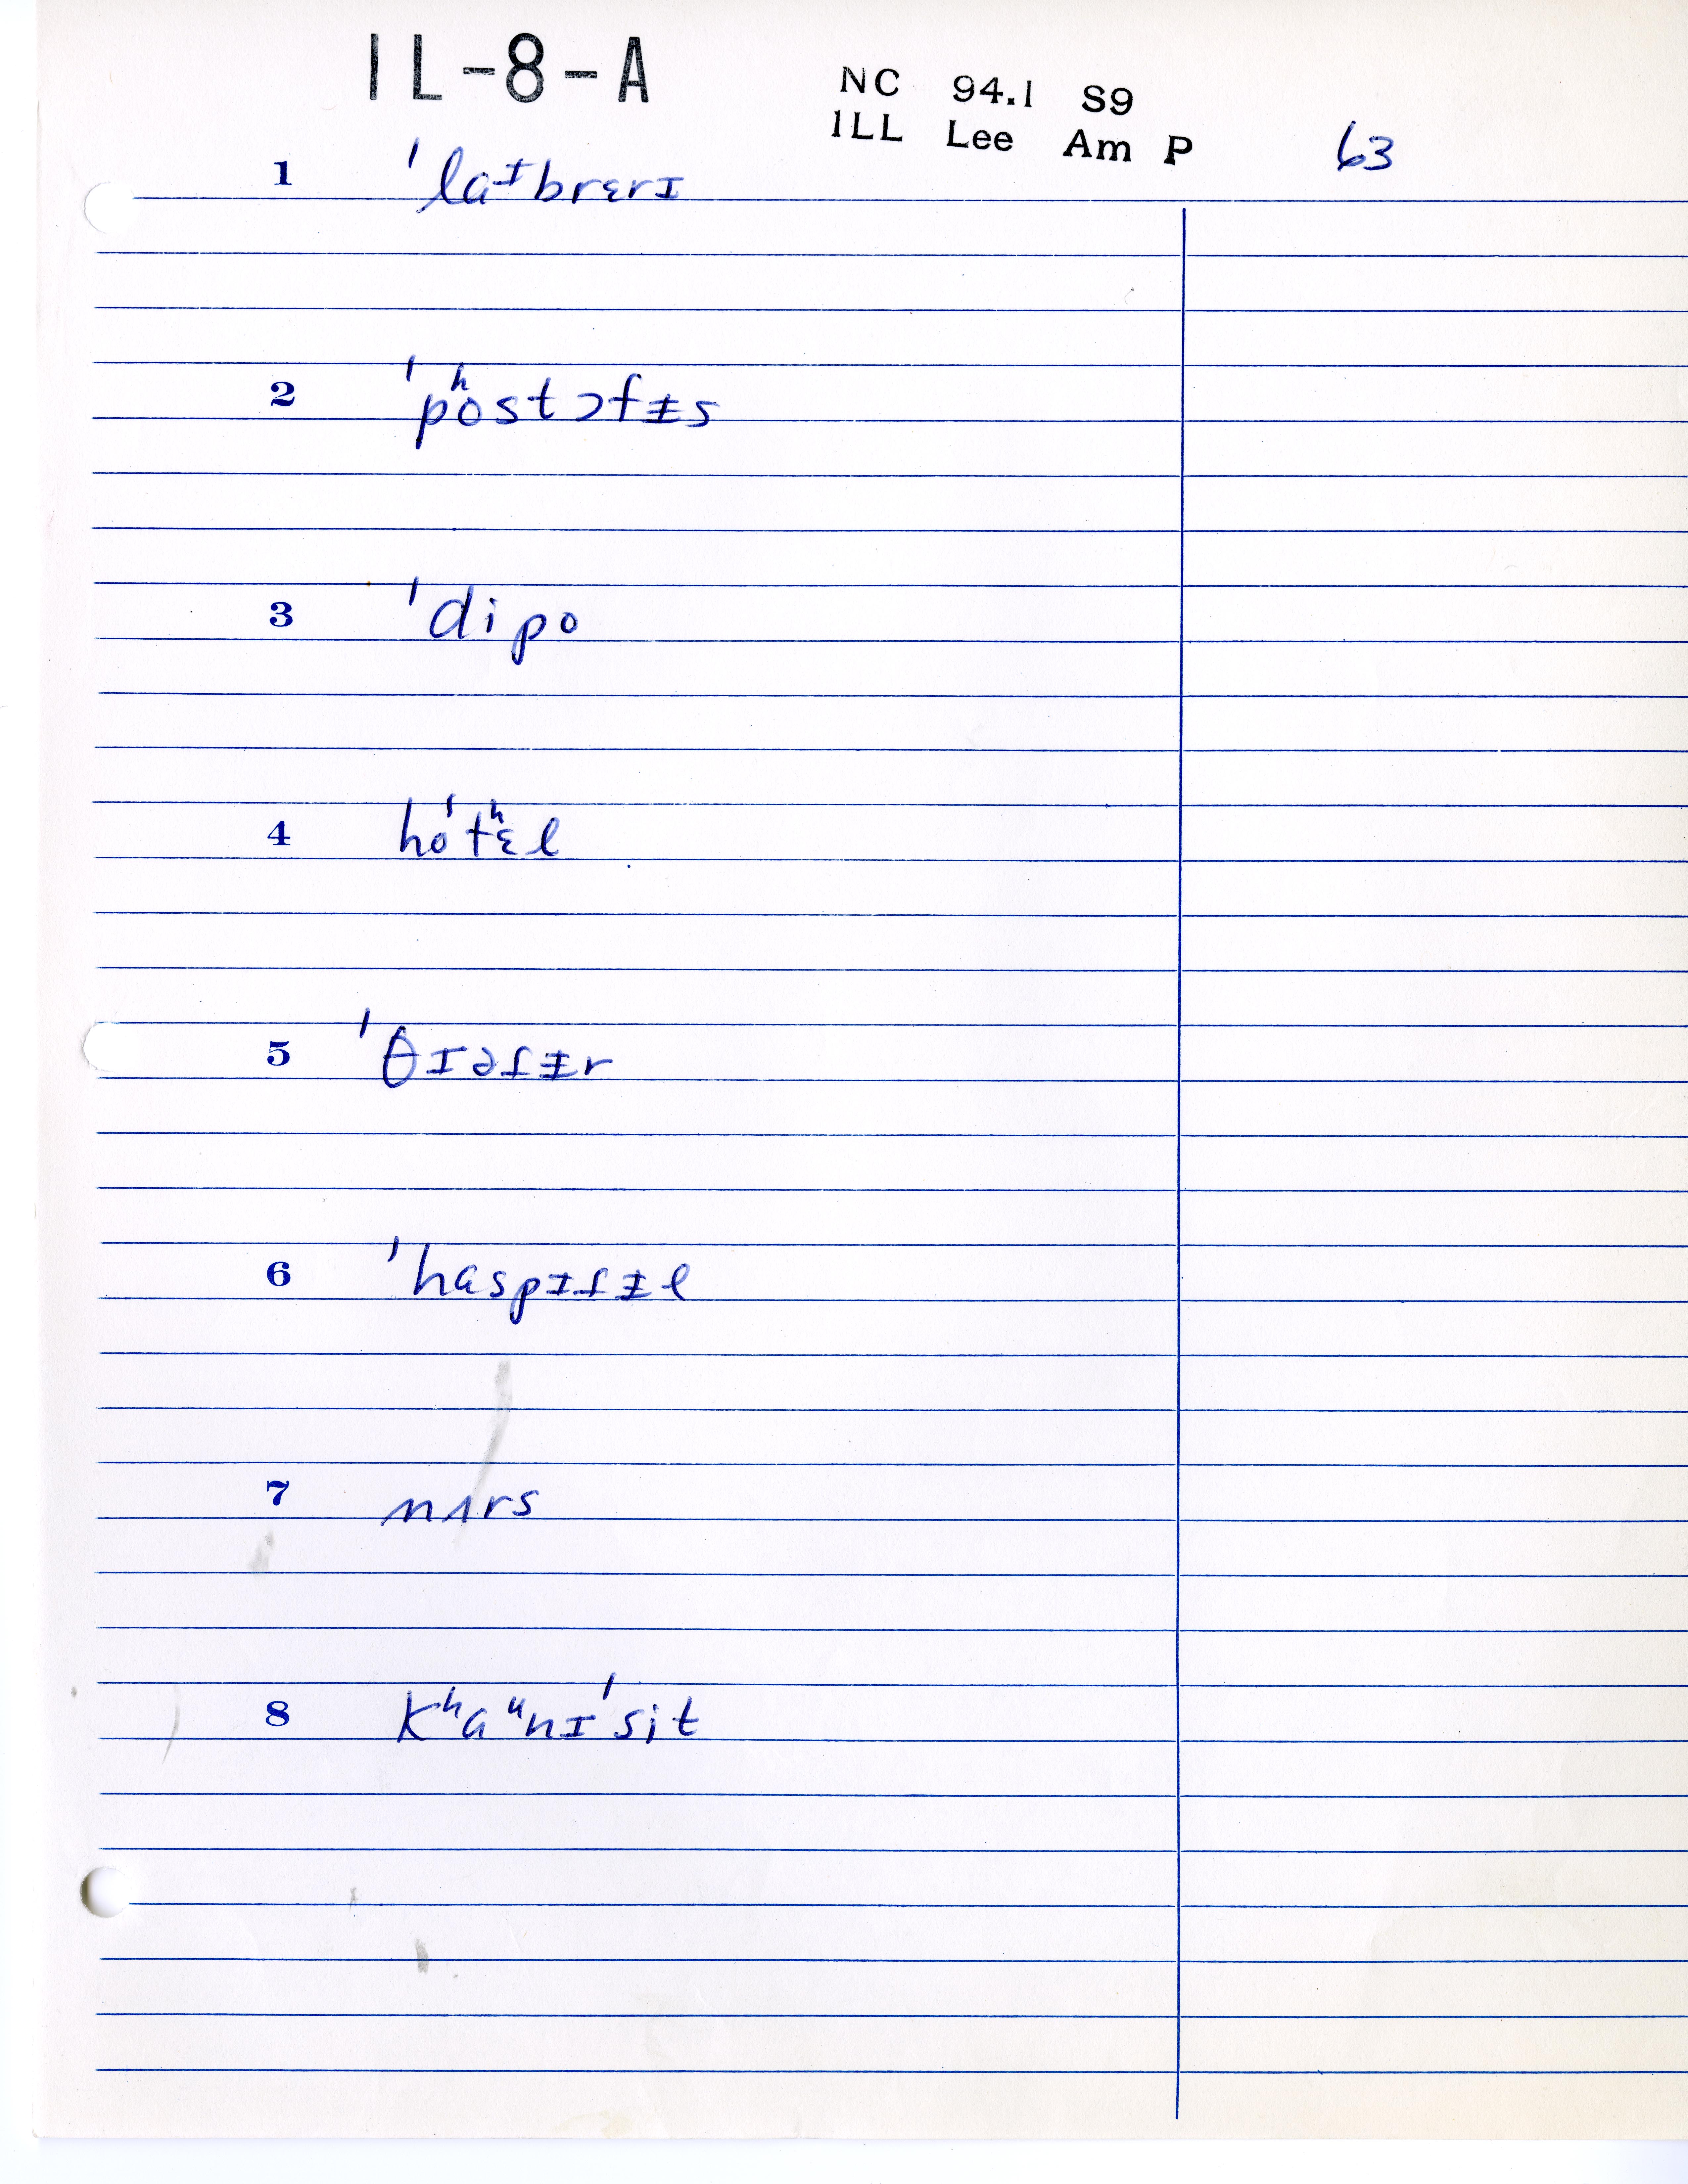 IL-8-A
NC 94.1 S9
ILL Lee Am P
63
1 ˈlaᶦbrɛrɪ
2 ˈpʰostɔfɪ̵s
3 ˈdipo
4 hoˈtʰɛl
5 ˈθɪəɾɪ̵r
6 ˈhaspɪɾɪ̵l
7 nʌrs
8 kʰaᵘnɪˈsit